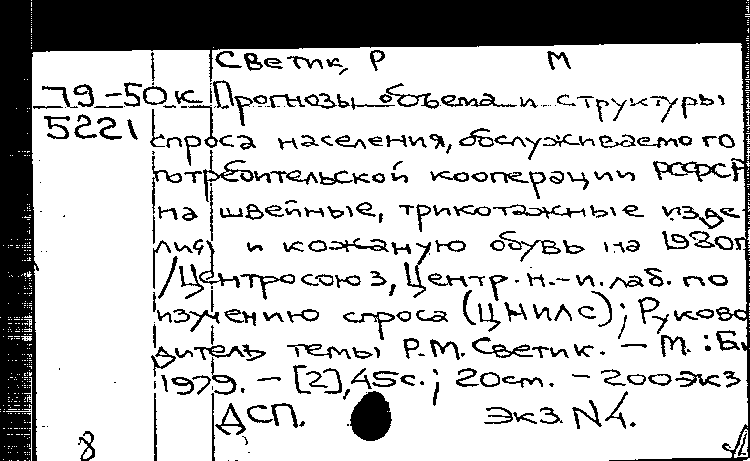 Светик, Р М
79-50к Прогнозы объема и структуры
5221 спроса населения, обслуживаемого
потребительской кооперации РСФСР
на швейные, трикотажные изде
лия и кожаную обувь на 1980г
/Центросоюз, Центр. н.-и. лаб. по
изучению спроса (ЦНИЛС); Руково
дитель темы Р.М. Светик. — М.: Б.и
1979. — [2], 45 с.; 20 см. — 200 экз
ДСП. экз. N4.
8